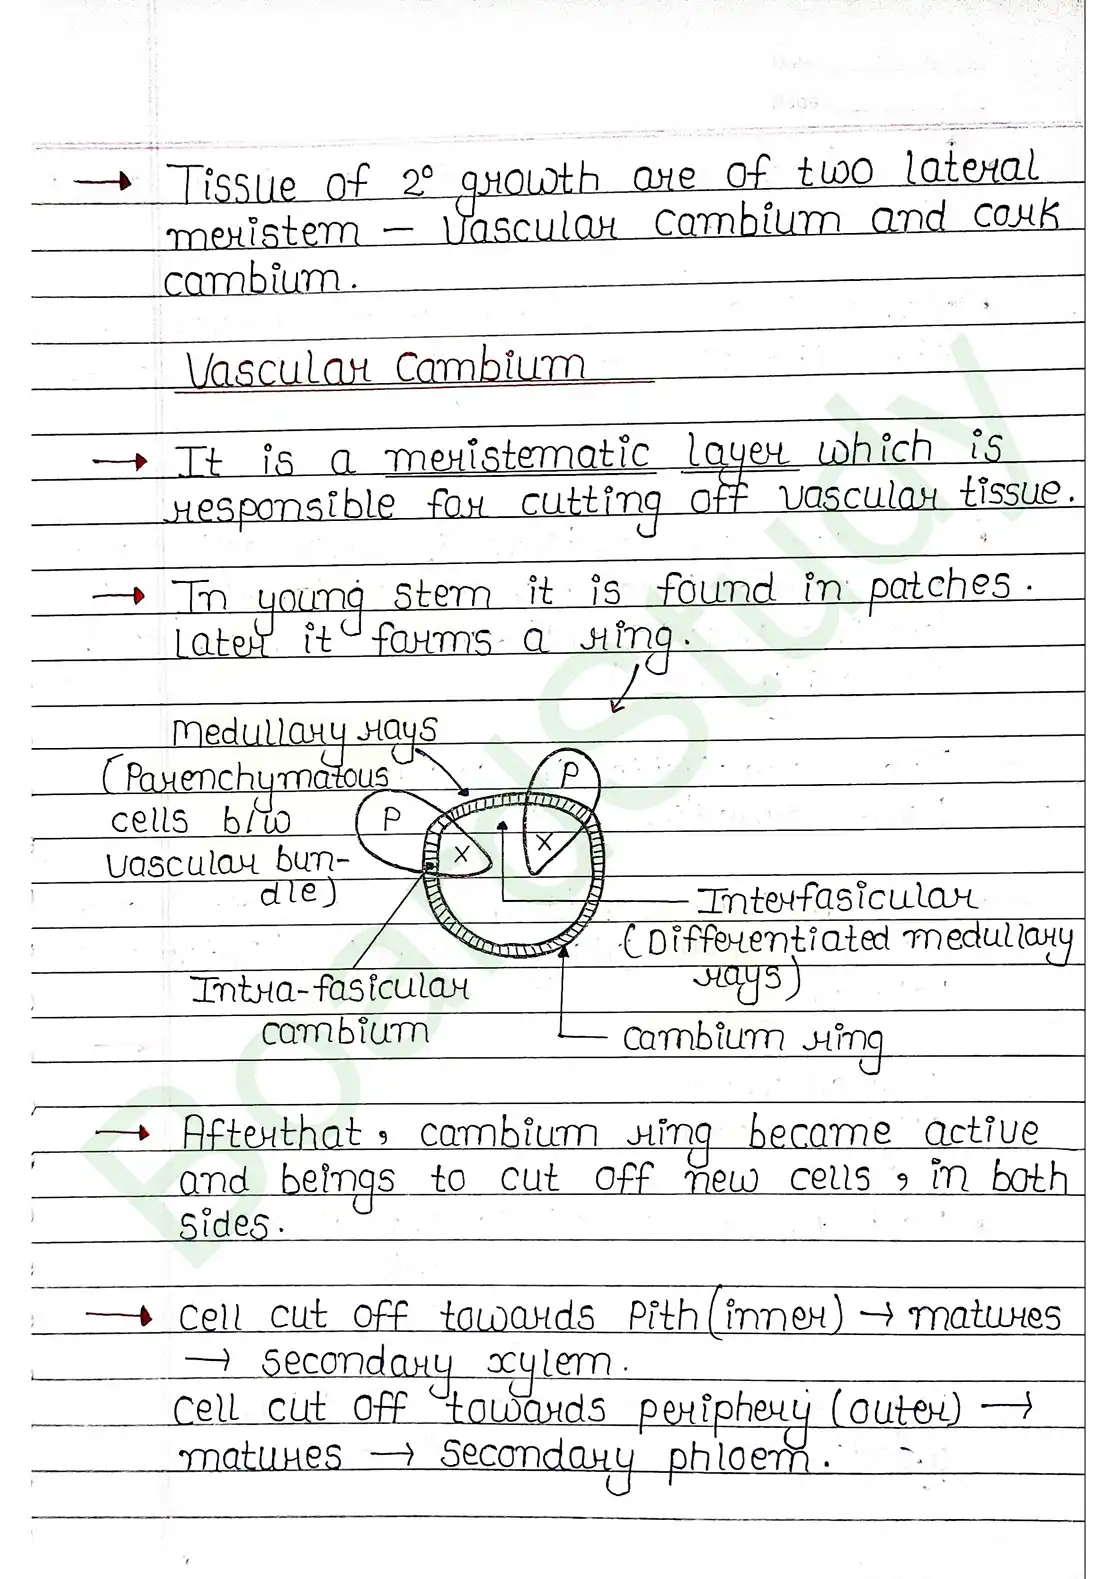 → Tissue of 2° growth are of two lateral
meristem – Vascular Cambium and cork
cambium.
Vascular Cambium
→ It is a meristematic layer which is
responsible for cutting off vascular tissue.
→ In young stem it is found in patches.
Later it forms a ring.
Medullary rays
(Parenchymatous
cells b/w
Vascular bun-
dle)
P
X
P
X
Interfasicular
(Differentiated medullary
rays)
Intra-fasicular
cambium
Cambium ring
→ Afterthat, cambium ring became active
and beings to cut off new cells, in both
sides.
→ Cell cut off towards Pith (inner) → matures
→ secondary xylem.
Cell cut off towards periphery (outer) →
matures → secondary phloem.
BoardStudy